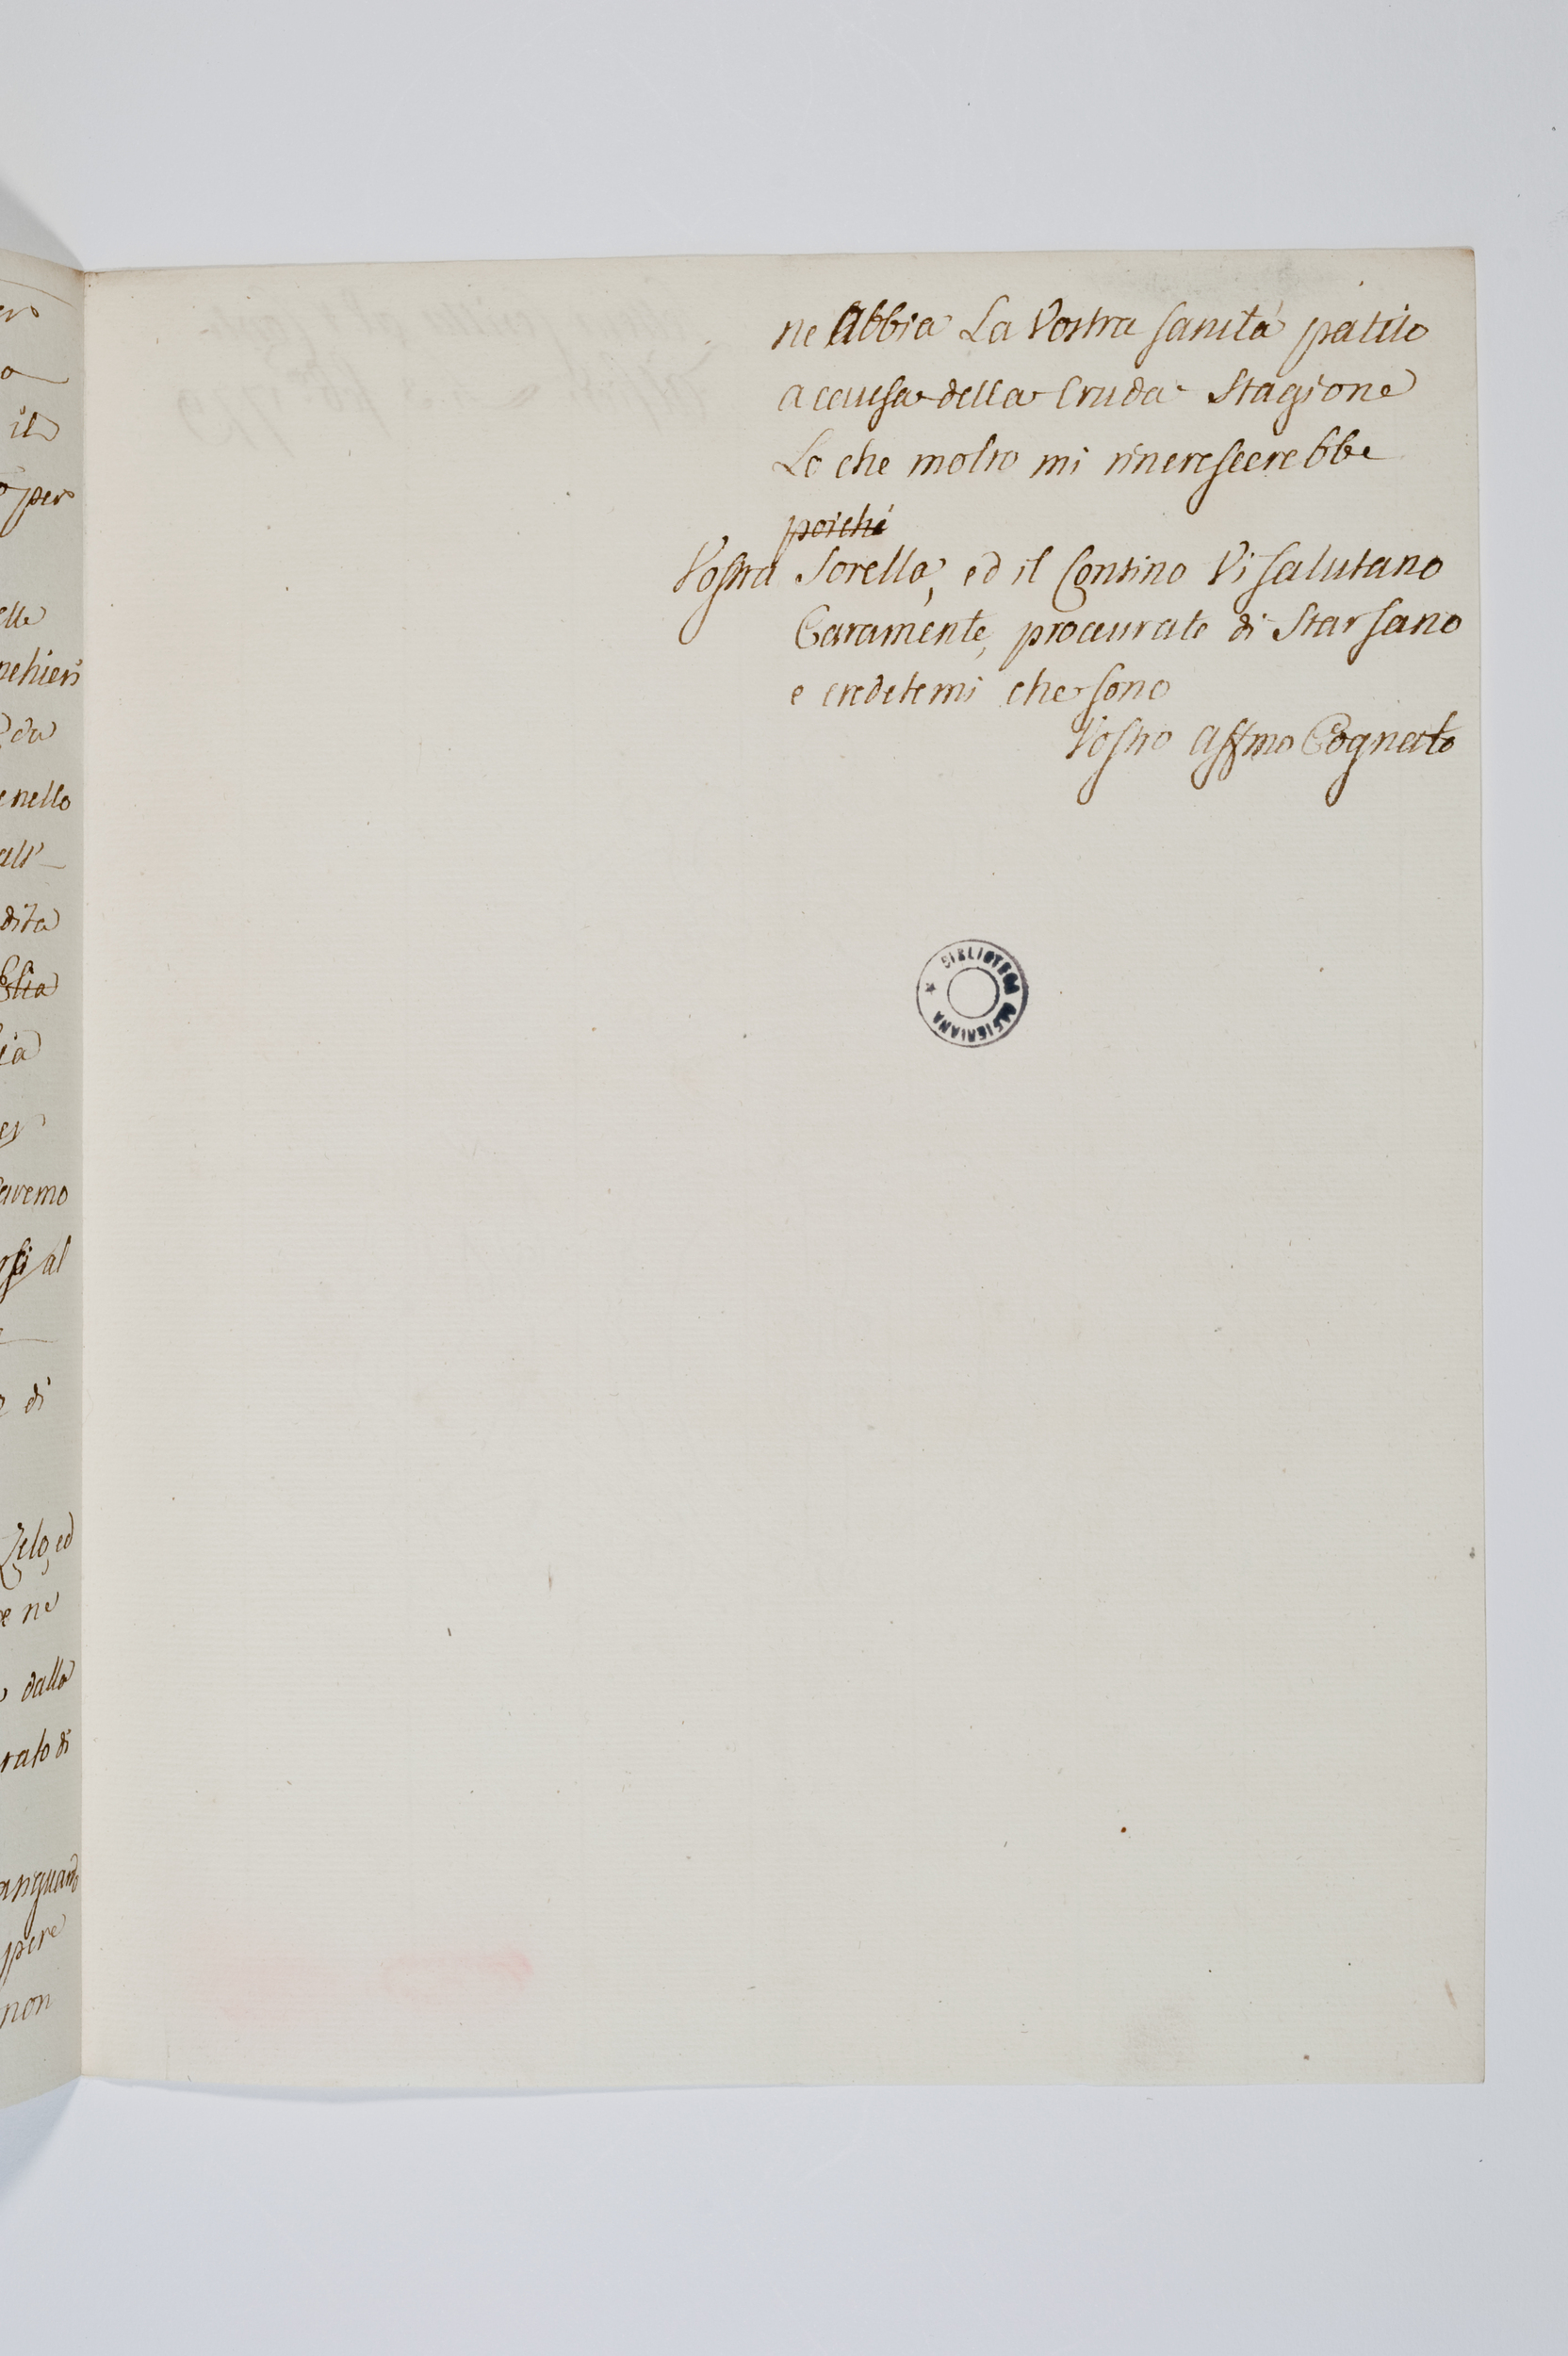 ne Abbia La Vostra sanità patito
a causa della Cruda Stagione
Lo che molto mi rincrescerebbe
poiche
Vostra Sorella, ed il Contino Vi salutano
Caramente, procurate di Star sano
e credetemi che sono
Vostro Affmo Cognato
BIBLIOTECA
per
il
elle
nello
all'
dita
al
di
Zelo, ed
ne
dalla
di
non